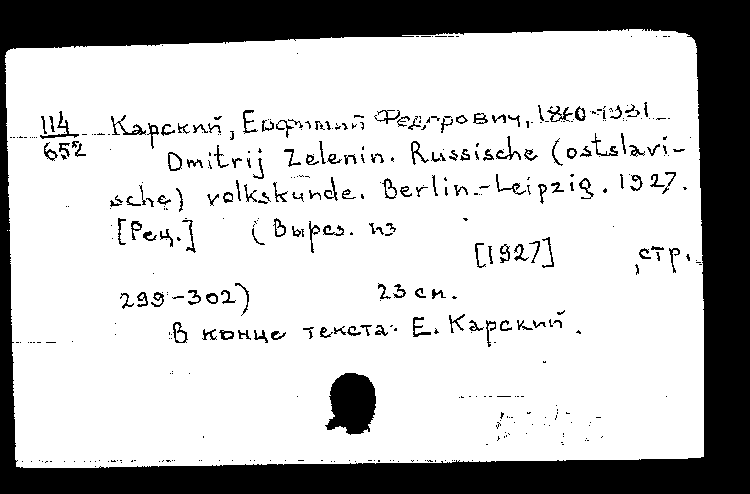 114 Карский, Евфимий Федорович, 1860-1931
652 Dmitrij Zelenin. Russische (ostslavi-
sche) volkskunde. Berlin.-Leipzig. 1927.
[Рец.] (Вырез. из
[1927] , стр.
299-302) 23 см.
В конце текста: Е. Карский.